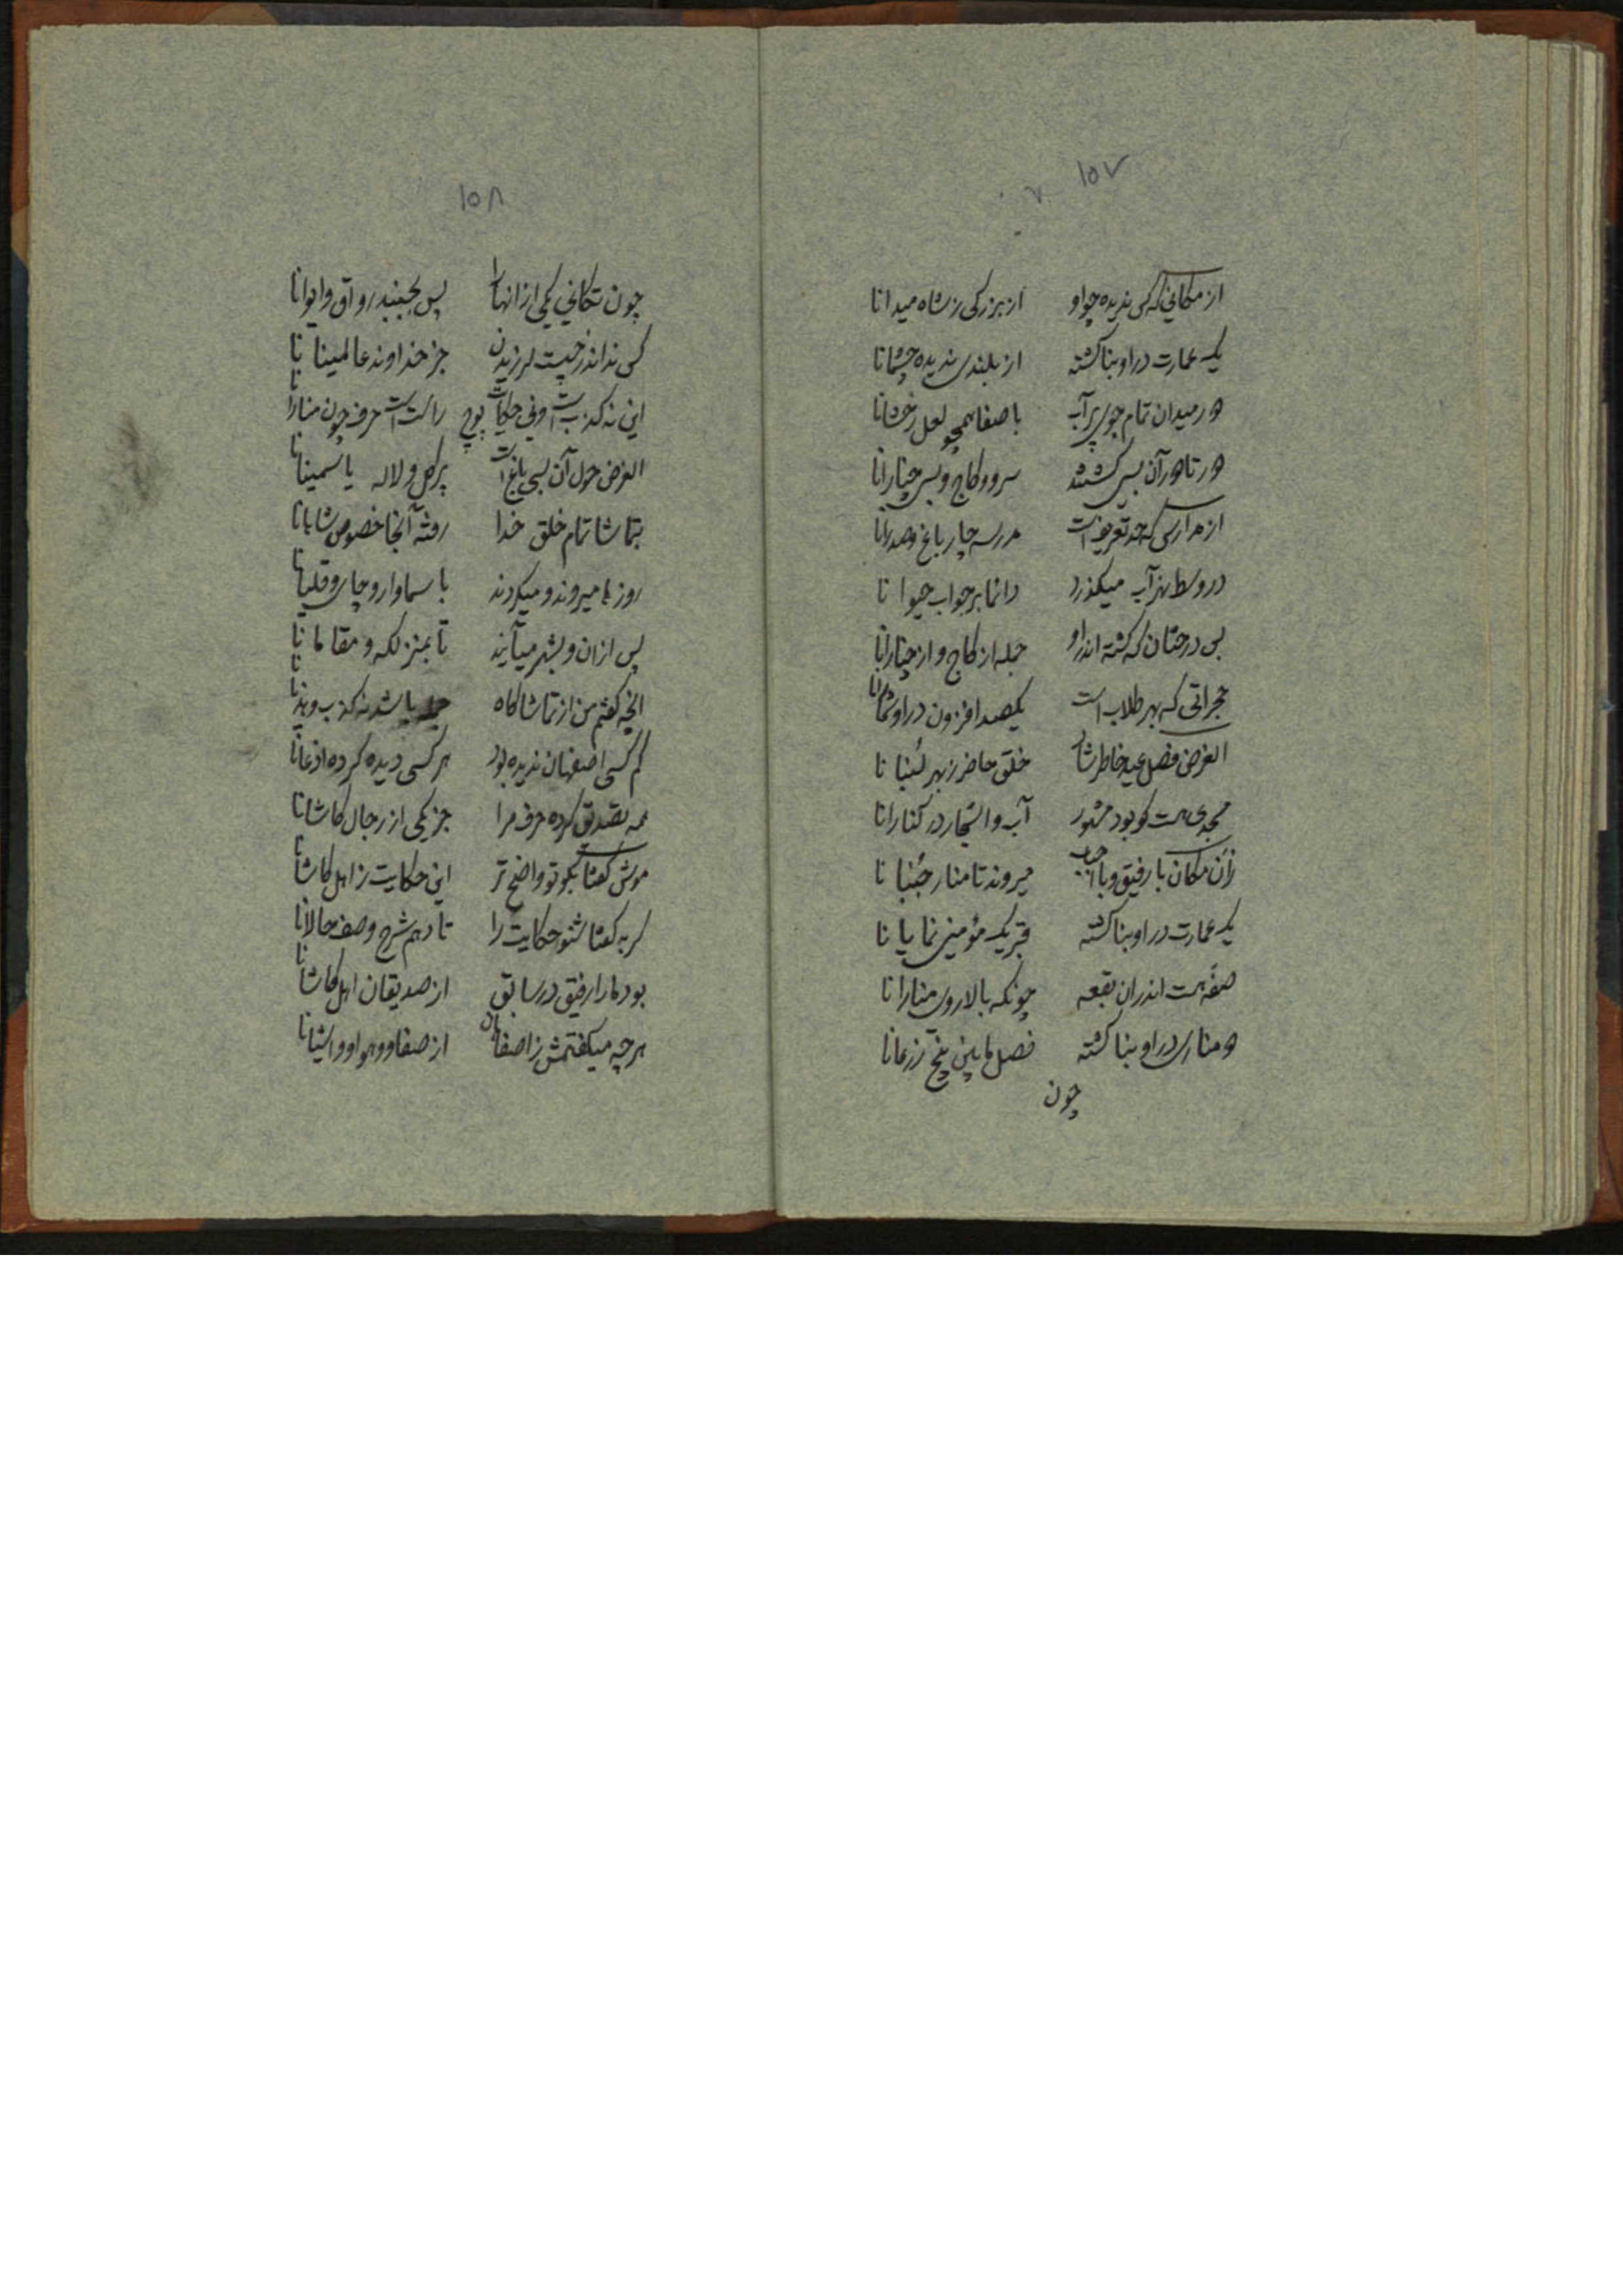 ۱۵۷
از مکانی که کس ندیده چو او از بزرگی ز شاه میدانا
یک عمارت در او بنا گشته از بلندی ندیده چشمانا
دور میدان تمام جوی پر آب با صفا همچو لعل رخشانا
دور تا دور آن بسی کشتند سرو و کاج و بس چنارانا
از مدارس که حد تعریفست مدرسه چار باغ و صدرانا
در وسط نهر آب میگذرد دائما پر جو آب حیوانا
بس درختان که کشته اندر او جمله از کاج و از چنارانا
حجراتی که بهر طلاب است یکصد افزون در او شمارانا
الغرض فصل عید خاطرشان خلق حاضر ز بهر لنبانا
مسجدی هست کو بود مشهور آب و اشجار در کنارانا
زان مکان با رفیق و با احباب میروند تا منار جنبانا
یک عمارت در او بنا گشته قبر یک مؤمنی نمایانا
صفه هست اندران بقعه چونکه بالا روی منارانا
دو مناری در او بنا گشته فصل مابین پنج زرعانا
چون
۱۵۸
چون تکانی یکی از آنها را پس بجنبد رواق و ایوانا
کس نداند ز چیست لرزیدن جز خداوند عالمینانا
این نه کذب است و نی حکایات پوچ راست است حرف چون منارانا
الغرض حول آن بسی باغ است پر گل و لاله یاسمینانا
بتماشا تمام خلق خدا رفته آنجا خصوص شابانا
روزها میروند و میگردند با سماوار و چای و قلیانا
پس از آن و بشهر میآیند تا بمنزلگه و مقامانا
آنچه گفتم من از تماشاگاه جمله باشد نه کذب و
گر کسی اصفهان ندیده بود هر کسی دیده کرده اذعانا
همه تصدیق کرده حرف مرا جز یکی از رجال کاشانا
موش گفتا بگو تو واضح تر این حکایت ز اهل کاشانا
گربه گفتا شنو حکایت را تا دهم شرح وصف حالانا
بود ما را رفیق در سابق از صدیقان اهل کاشانا
هر چه میگفتمش ز اصفاهان از صفا و هوا و اشیانا